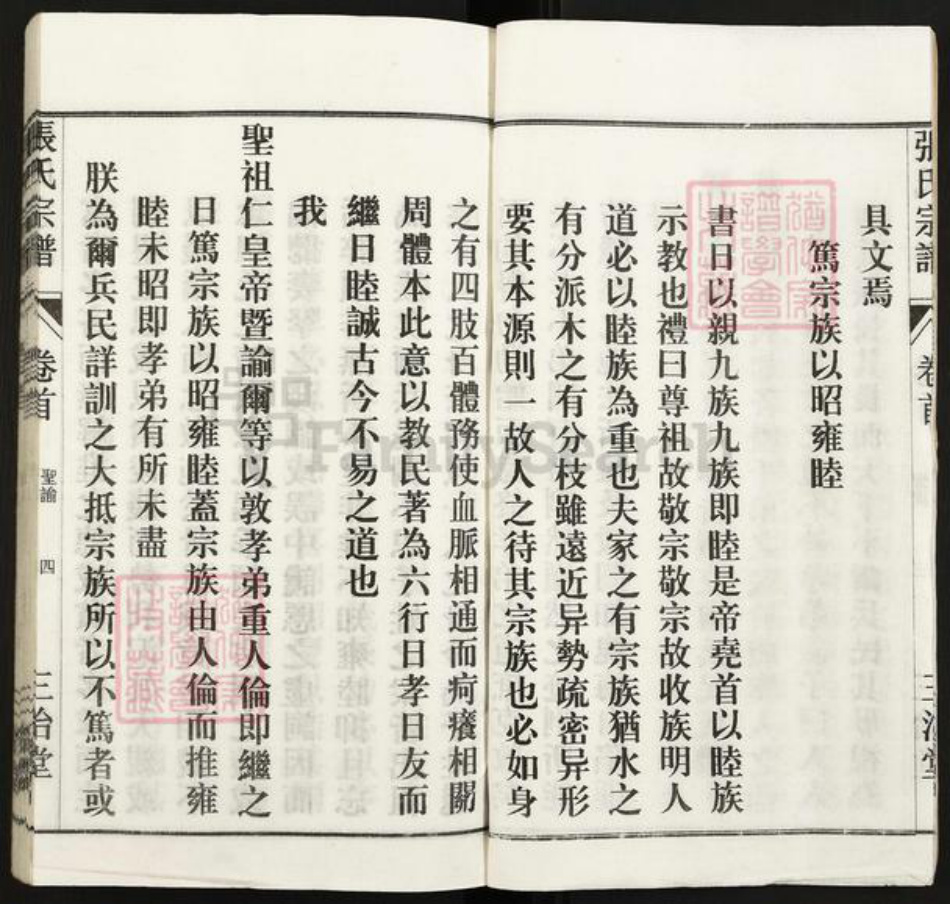 張氏宗譜
卷首
三治堂
具文焉
篤宗族以昭雍睦
書曰以親九族九族即睦是帝堯首以睦族
示教也禮曰尊祖故敬宗敬宗故收族明人
道必以睦族為重也夫家之有宗族猶水之
有分派木之有分枝雖遠近异勢疏密异形
要其本源則一故人之待其宗族也必如身
之有四肢百體務使血脈相通而疴癢相關
周體本此意以教民著為六行曰孝曰友而
繼曰睦誠古今不易之道也
我
聖祖仁皇帝暨諭爾等以敦孝弟重人倫即繼之
曰篤宗族以昭雍睦蓋宗族由人倫而推雍
睦未昭即孝弟有所未盡
朕為爾兵民詳訓之大抵宗族所以不篤者或
張氏宗譜
卷首
聖諭
四
三治堂
FamilySearch